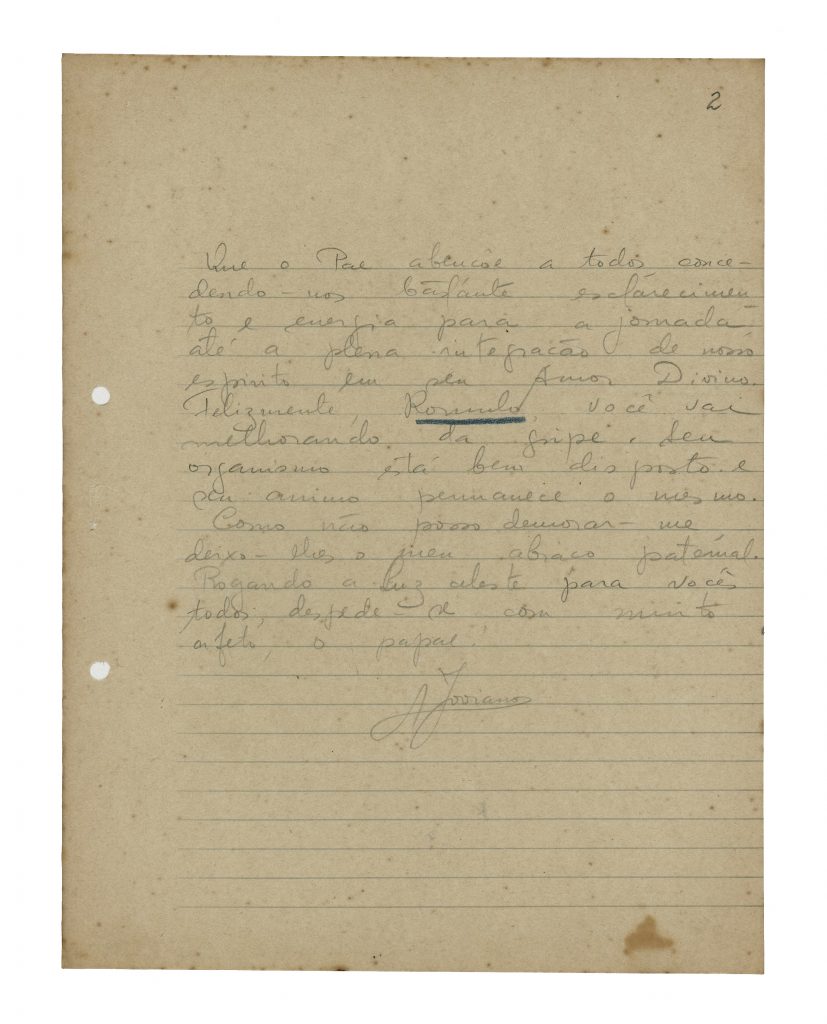 2
Que o Pae abençôe a todos conce-
dendo-nos bastante esclarecimen
to e energia para a jornada
até a plena integração de nosso
espirito em seu Amor Divino.
Felizmente, Romulo, você vai
melhorando da gripe. Seu
organismo está bem disposto e
seu animo permanece o mesmo.
Como não posso demorar-me
deixo-lhes o meu abraço paternal.
Rogando a luz celeste para vocês
todos, despede-se com muito
afeto, o papae.
A Joviano